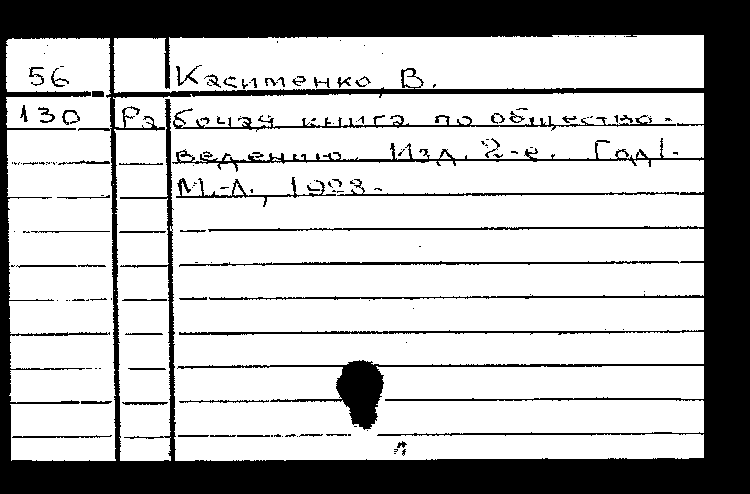 56 Касименко, В.
130 Рабочая книга по общество-
ведению. Изд. 2-е. Год I.
М.-Л., 1928.
л